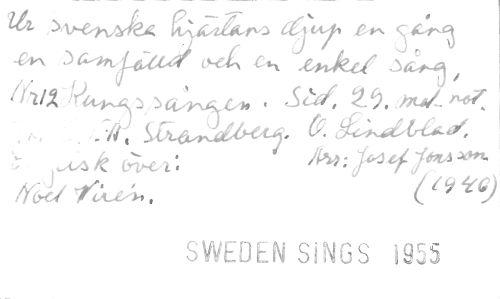 Ur svenska hjärtans djup en gång
en samfälld och en enkel sång,
Nr 12 Kungssången. Sid. 29. med not.
Strandberg. O. Lindblad.
över: Arr: Josef Jonsson
Noel Wirén. (1946)
SWEDEN SiNGS 1955